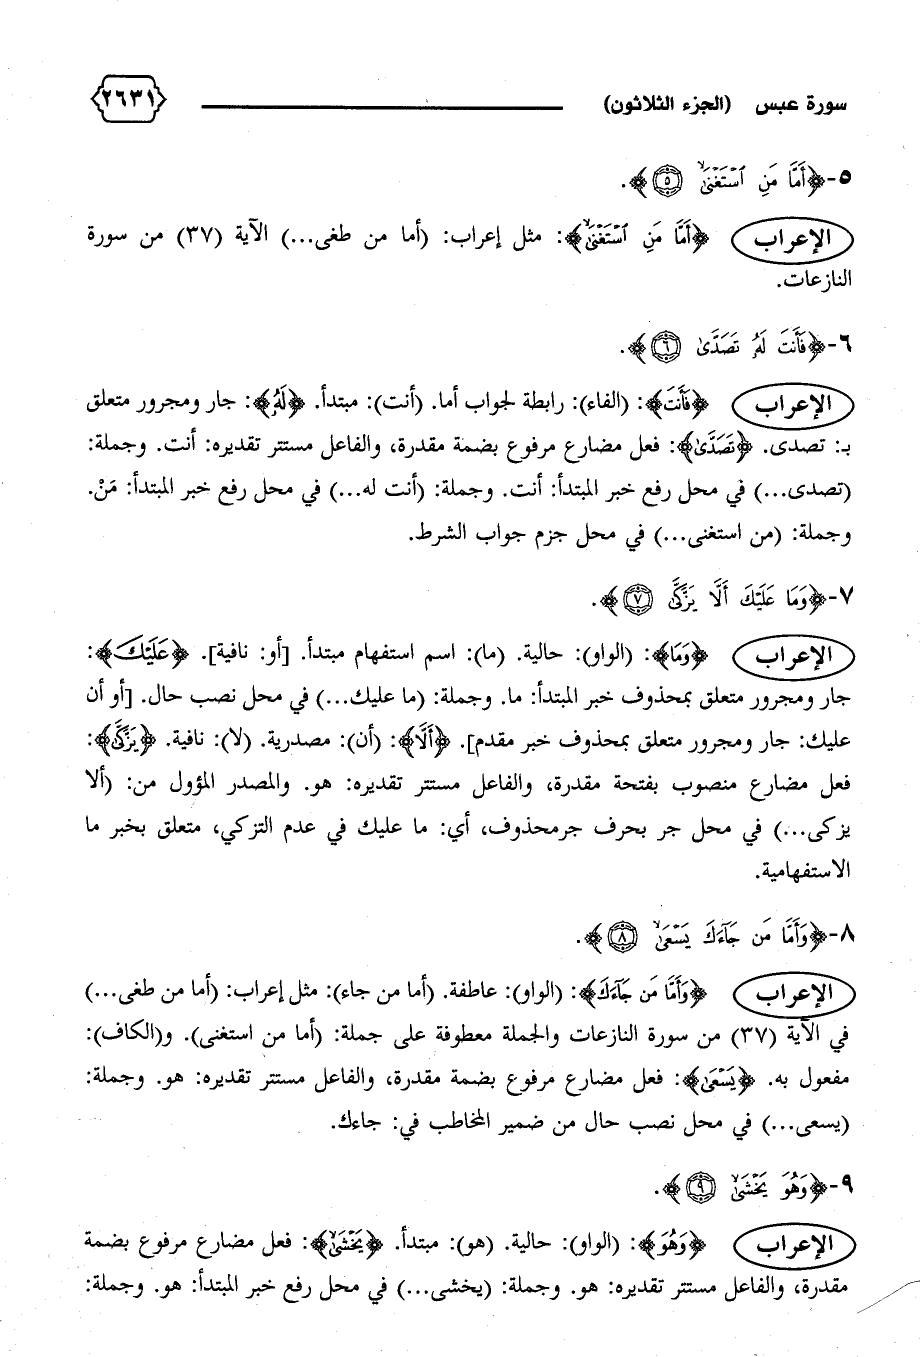 سورة عبس (الجزء الثلاثون) ٢٦٣١
٥-﴿أَمَّا مَنِ ٱسْتَغْنَىٰ ۝٥﴾.
الإعراب ﴿أَمَّا مَنِ ٱسْتَغْنَىٰ﴾: مثل إعراب: (أما من طغى...) الآية (٣٧) من سورة
النازعات.
٦-﴿فَأَنتَ لَهُۥ تَصَدَّىٰ ۝٦﴾.
الإعراب ﴿فَأَنتَ﴾: (الفاء): رابطة لجواب أما. (أنت): مبتدأ. ﴿لَهُۥ﴾: جار ومجرور متعلق
بـ: تصدى. ﴿تَصَدَّىٰ﴾: فعل مضارع مرفوع بضمة مقدرة، والفاعل مستتر تقديره: أنت. وجملة:
(تصدى...) في محل رفع خبر المبتدأ: أنت. وجملة: (أنت له...) في محل رفع خبر المبتدأ: مَنْ.
وجملة: (من استغنى...) في محل جزم جواب الشرط.
٧-﴿وَمَا عَلَيْكَ أَلَّا يَزَّكَّىٰ ۝٧﴾.
الإعراب ﴿وَمَا﴾: (الواو): حالية. (ما): اسم استفهام مبتدأ. [أو: نافية]. ﴿عَلَيْكَ﴾:
جار ومجرور متعلق بمحذوف خبر المبتدأ: ما. وجملة: (ما عليك...) في محل نصب حال. [أو أن
عليك: جار ومجرور متعلق بمحذوف خبر مقدم]. ﴿أَلَّا﴾: (أن): مصدرية. (لا): نافية. ﴿يَزَّكَّىٰ﴾:
فعل مضارع منصوب بفتحة مقدرة، والفاعل مستتر تقديره: هو. والمصدر المؤول من: (ألا
يزكى...) في محل جر بحرف جرمحذوف، أي: ما عليك في عدم التزكي، متعلق بخبر ما
الاستفهامية.
٨-﴿وَأَمَّا مَن جَآءَكَ يَسْعَىٰ ۝٨﴾.
الإعراب ﴿وَأَمَّا مَن جَآءَكَ﴾: (الواو): عاطفة. (أما من جاء): مثل إعراب: (أما من طغى...)
في الآية (٣٧) من سورة النازعات والجملة معطوفة على جملة: (أما من استغنى). و(الكاف):
مفعول به. ﴿يَسْعَىٰ﴾: فعل مضارع مرفوع بضمة مقدرة، والفاعل مستتر تقديره: هو. وجملة:
(يسعى...) في محل نصب حال من ضمير المخاطب في: جاءك.
٩-﴿وَهُوَ يَخْشَىٰ ۝٩﴾.
الإعراب ﴿وَهُوَ﴾: (الواو): حالية. (هو): مبتدأ. ﴿يَخْشَىٰ﴾: فعل مضارع مرفوع بضمة
مقدرة، والفاعل مستتر تقديره: هو. وجملة: (يخشى...) في محل رفع خبر المبتدأ: هو. وجملة: